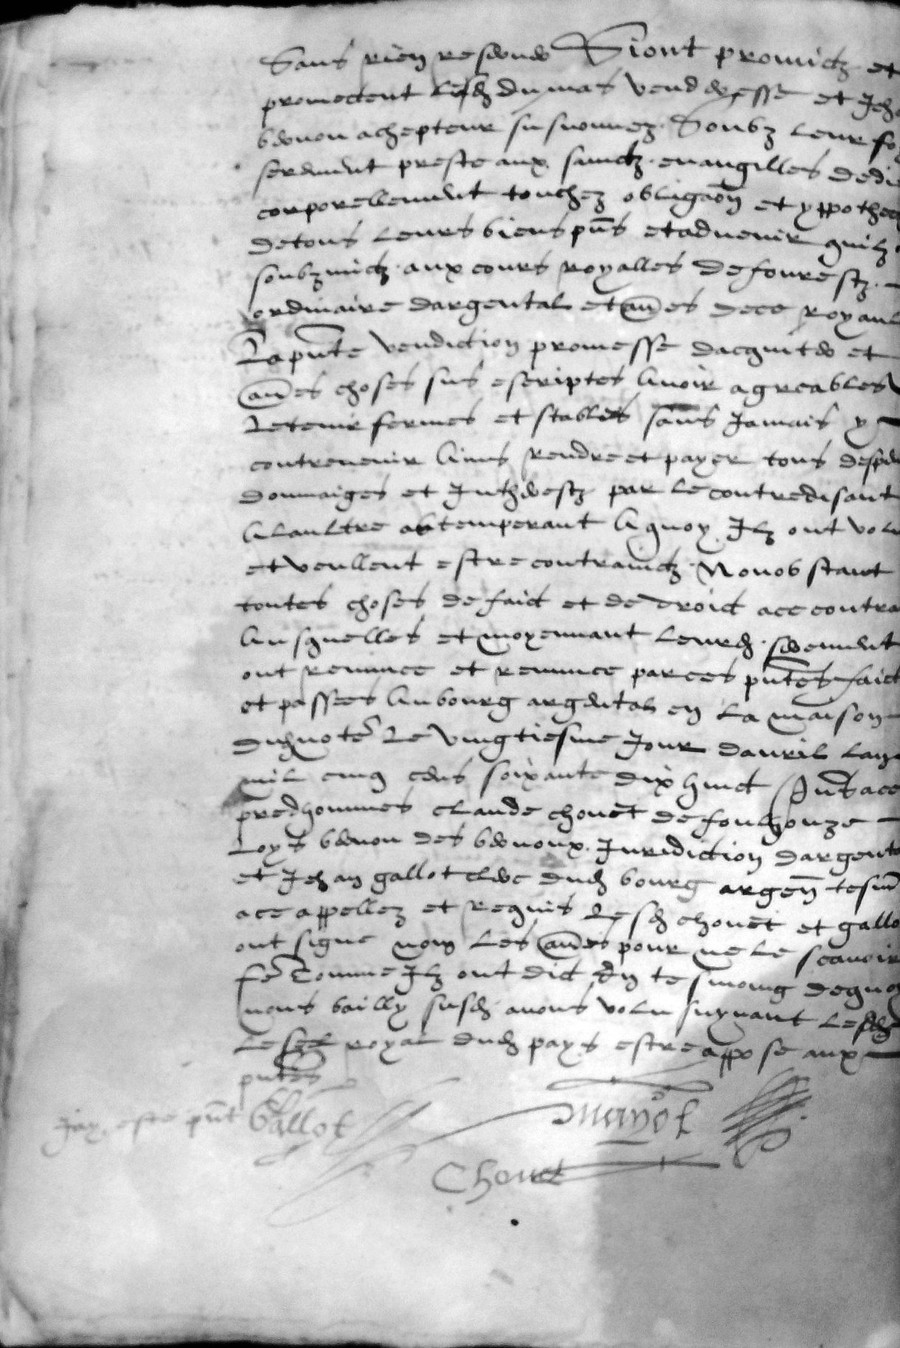 Sans rien reserver Siont promictz et
promectent lesd dumas venderesse et Jeh
bevon achepteur susnommez Soubz leur foy
serement preste aux sainctz evangilles de di
corporellement touchez obligaon et yppothecq
de tous leurs biens pns et advenir quilz
soubzmictz aux cours royalles de fourestz
ordinaire dargental et aues de ce royaul
La pnte vendiction promesse dacquiter et
aues choses sus escriptes Avoir agreables
Et tenir fermes et stables sans Jamais y
contrevenir Ains rendre et payer tous despe
dommaiges et Inthrestz par le contredisant
A laultre obtemperant A quoy Ilz ont volu
et veullent estre contrainctz Nonobstant
toutes choses de faict et de droict a ce contra
Ausquelles et moyennant leurd serement
ont renunce et renunce par ces pntes faict
et passees Au bourg argental en La maison
dud note Le vingtiesme Jour davril lan
mil cinq cens soixante dix huict Pns a ce
predhommes claude chouet de foulhouze
Loys bevon des bevoux Juridiction dargent
et Jehan gallot clerc dud bourg argen tesm
a ce appellez et requis Lesd chouet et gallo
ont signe non Les aues pour ne le scavoir
fe Comme Ilz ont dict En tesmoing de quoy
nous bailly susd avons volu suyvant lesd
Le seel royal dud pays estre appose aux
pntes
Jay este pnt Gallot Mayol
Chouet